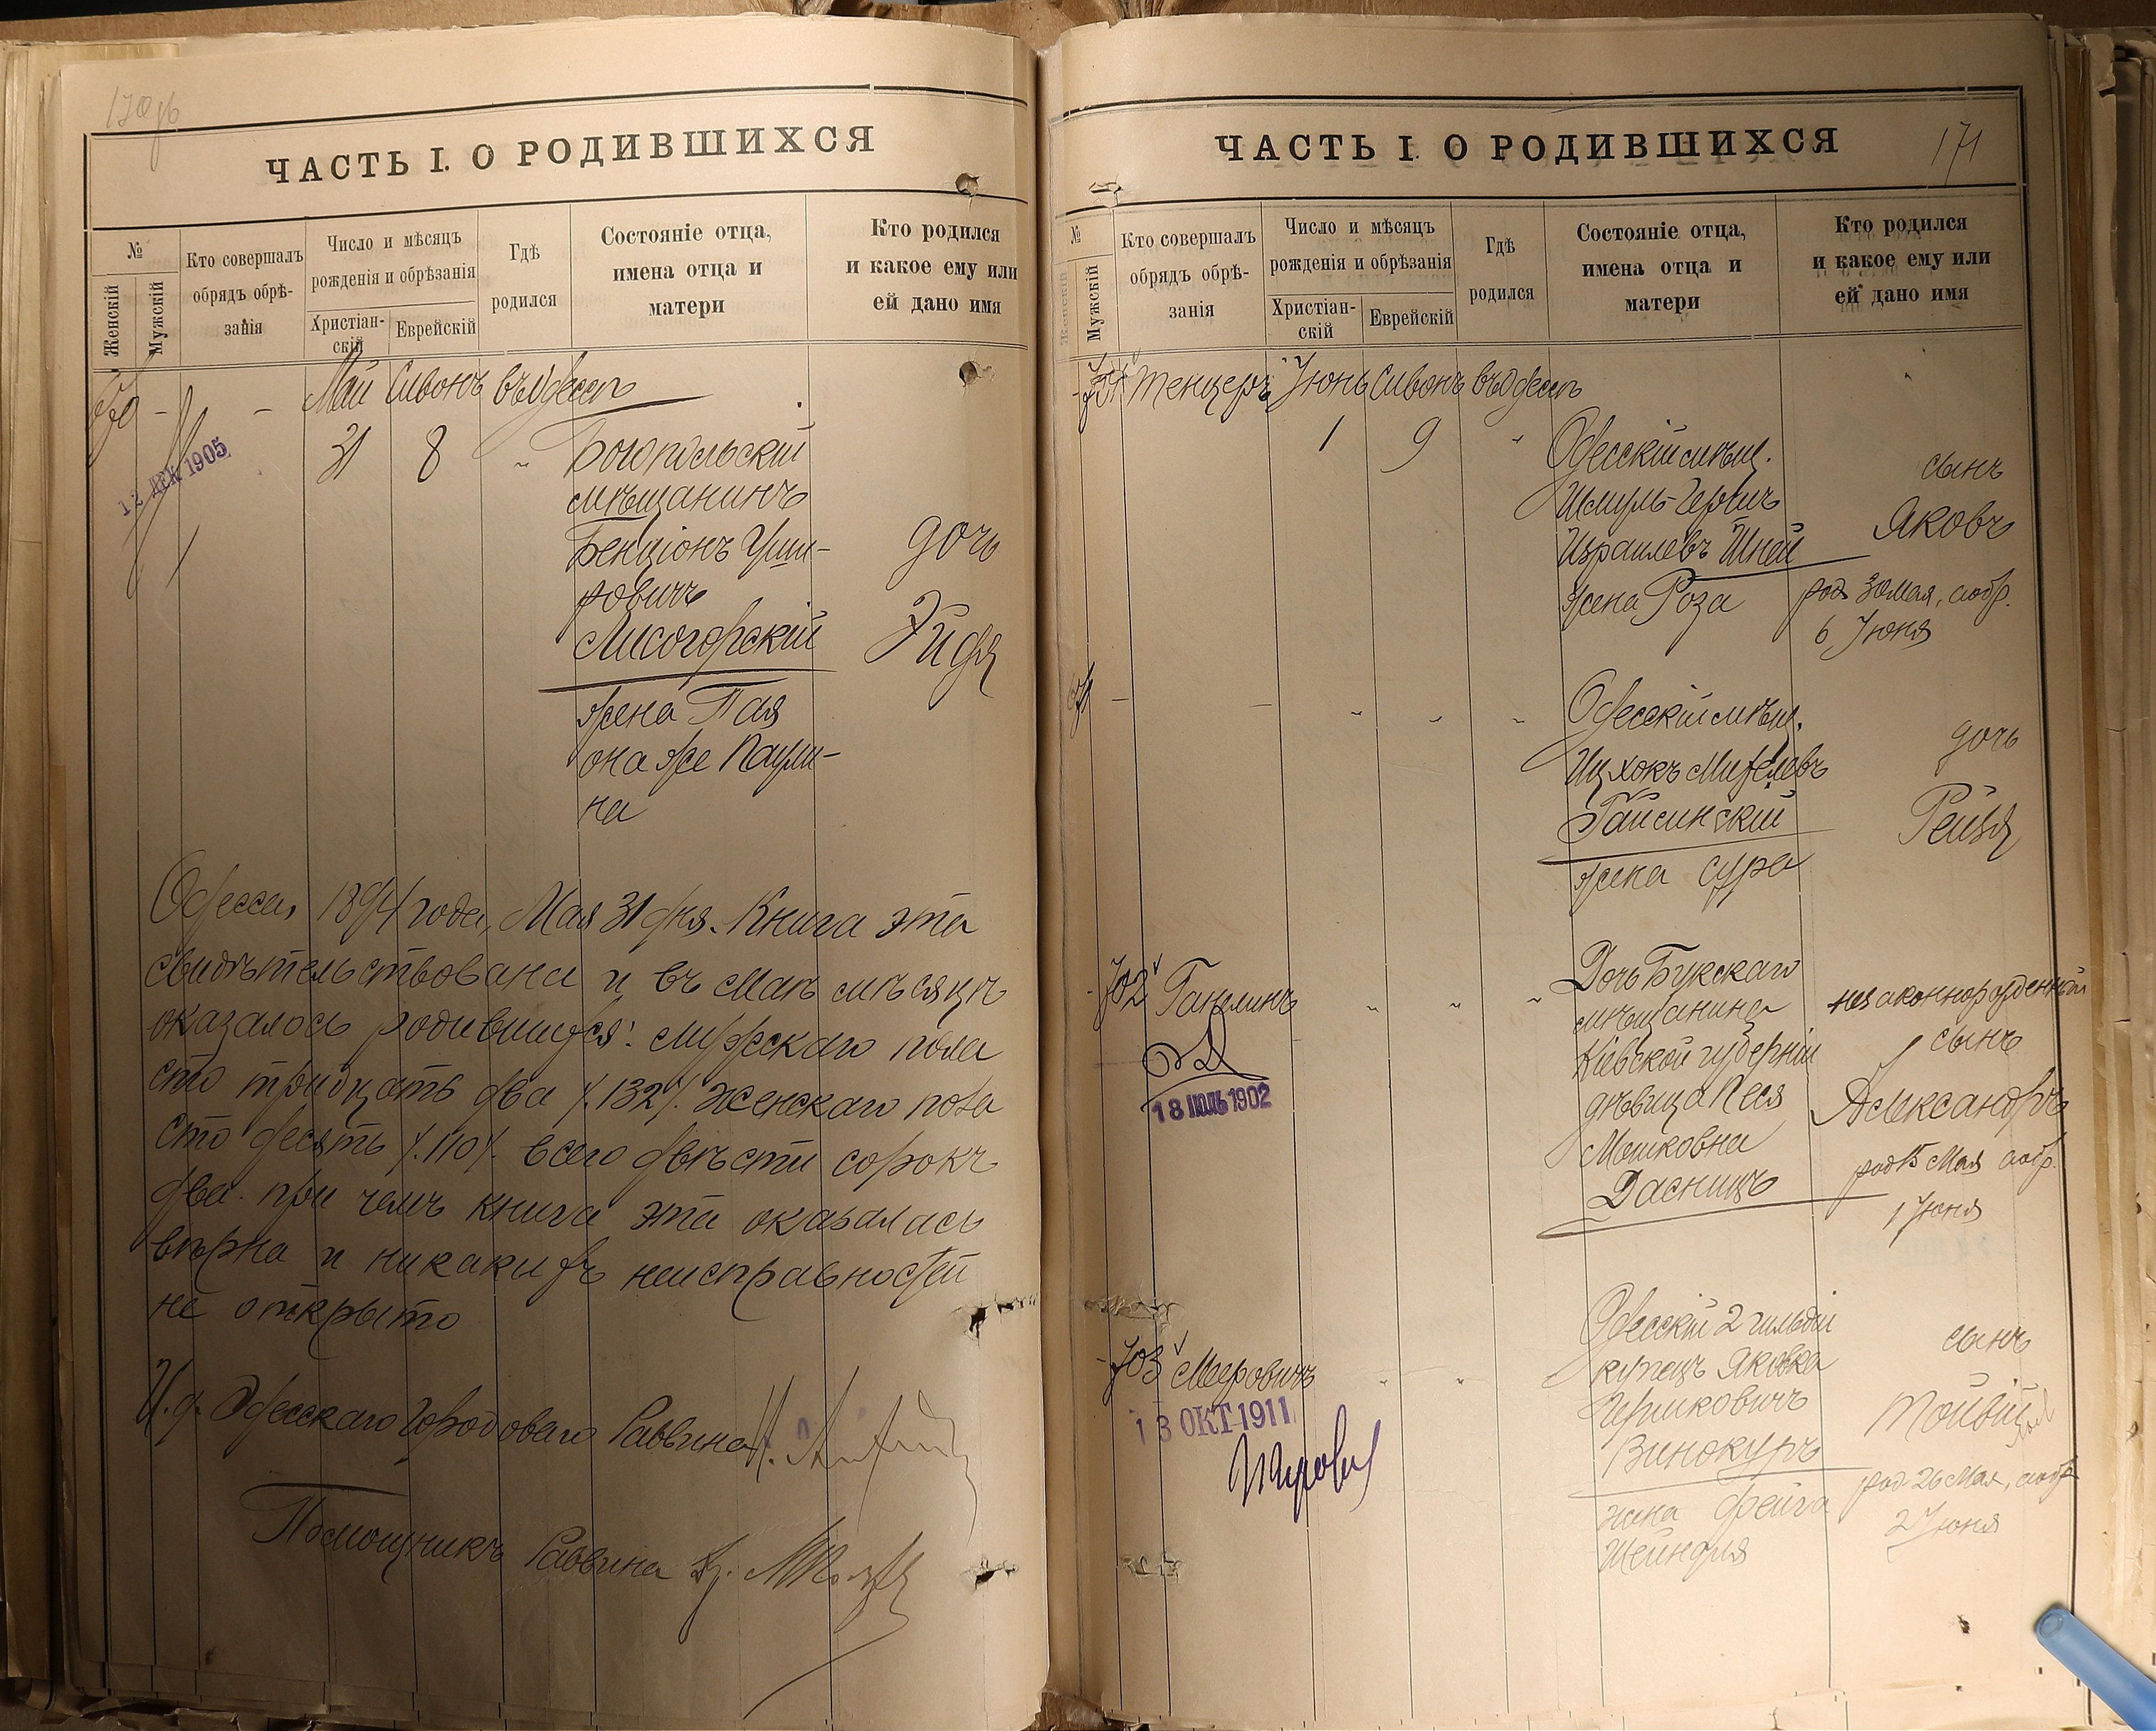 ЧАСТЬ I. О РОДИВШИХСЯ
№
Женскій
Мужскій
Кто совершалъ
обрядъ обрѣ-
занія
Число и мѣсяцъ
рожденія и обрѣзанія
Христіан-
скій
Еврейскій
Гдѣ
родился
Состояніе отца,
имена отца и
матери
Кто родился
и какое ему или
ей дано имя
Май Сивонъ въ Одессѣ
12 ДЕК 1905
31 8
Богопольскій
мѣщанинъ
Бенціонъ Уши-
ровичъ
Лисогорскій
жена Пая
она же Паули-
на
дочь
Эйдя
Одесса, 1894 года, Мая 31 дня. Книга эта
свидѣтельствована и въ Маѣ мѣсяцѣ
оказалось родившихся: мужскаго пола
сто тридцать два /.132/. женскаго пола
сто десять /.110/. всего двѣсти сорокъ
два. при чемъ книга эта оказалась
вѣрна и никакихъ неисправностей
не открыто
И. д. Одесскаго Городоваго Раввина
Помощникъ Раввина
ЧАСТЬ I. О РОДИВШИХСЯ
171
№
Женскій
Мужскій
Кто совершалъ
обрядъ обрѣ-
занія
Число и мѣсяцъ
рожденія и обрѣзанія
Христіан-
скій
Еврейскій
Гдѣ
родился
Состояніе отца,
имена отца и
матери
Кто родился
и какое ему или
ей дано имя
Тенцеръ Іюнь Сивонъ въ Одессѣ
1 9
Одесскій мѣщ.
Шмуль-Гершъ
Израилевъ Шней
жена Роза
сынъ
Яковъ
род 30 Мая, а обр.
6 Іюня
Одесскій мѣщ.
Ицхокъ Михелевъ
Гайсинскій
жена Сура
дочь
Рейзя
702 Ганелинъ
18 ІЮЛЬ 1902
Дочь Букскаго
мѣщанина
Кіевской губерніи
дѣвица Песя
Мошковна
Дасницъ
незаконнорожденный
сынъ
Александръ
род 15 Мая а обр.
1 Іюня
703 Мееровичъ
13 ОКТ 1911
Одесскій 2 гильдіи
купецъ Яковка
Гершковичъ
Винокуръ
жена Фейга
Шейндля
сынъ
Тойвій
род. 26 Мая, а обр
2 Іюня